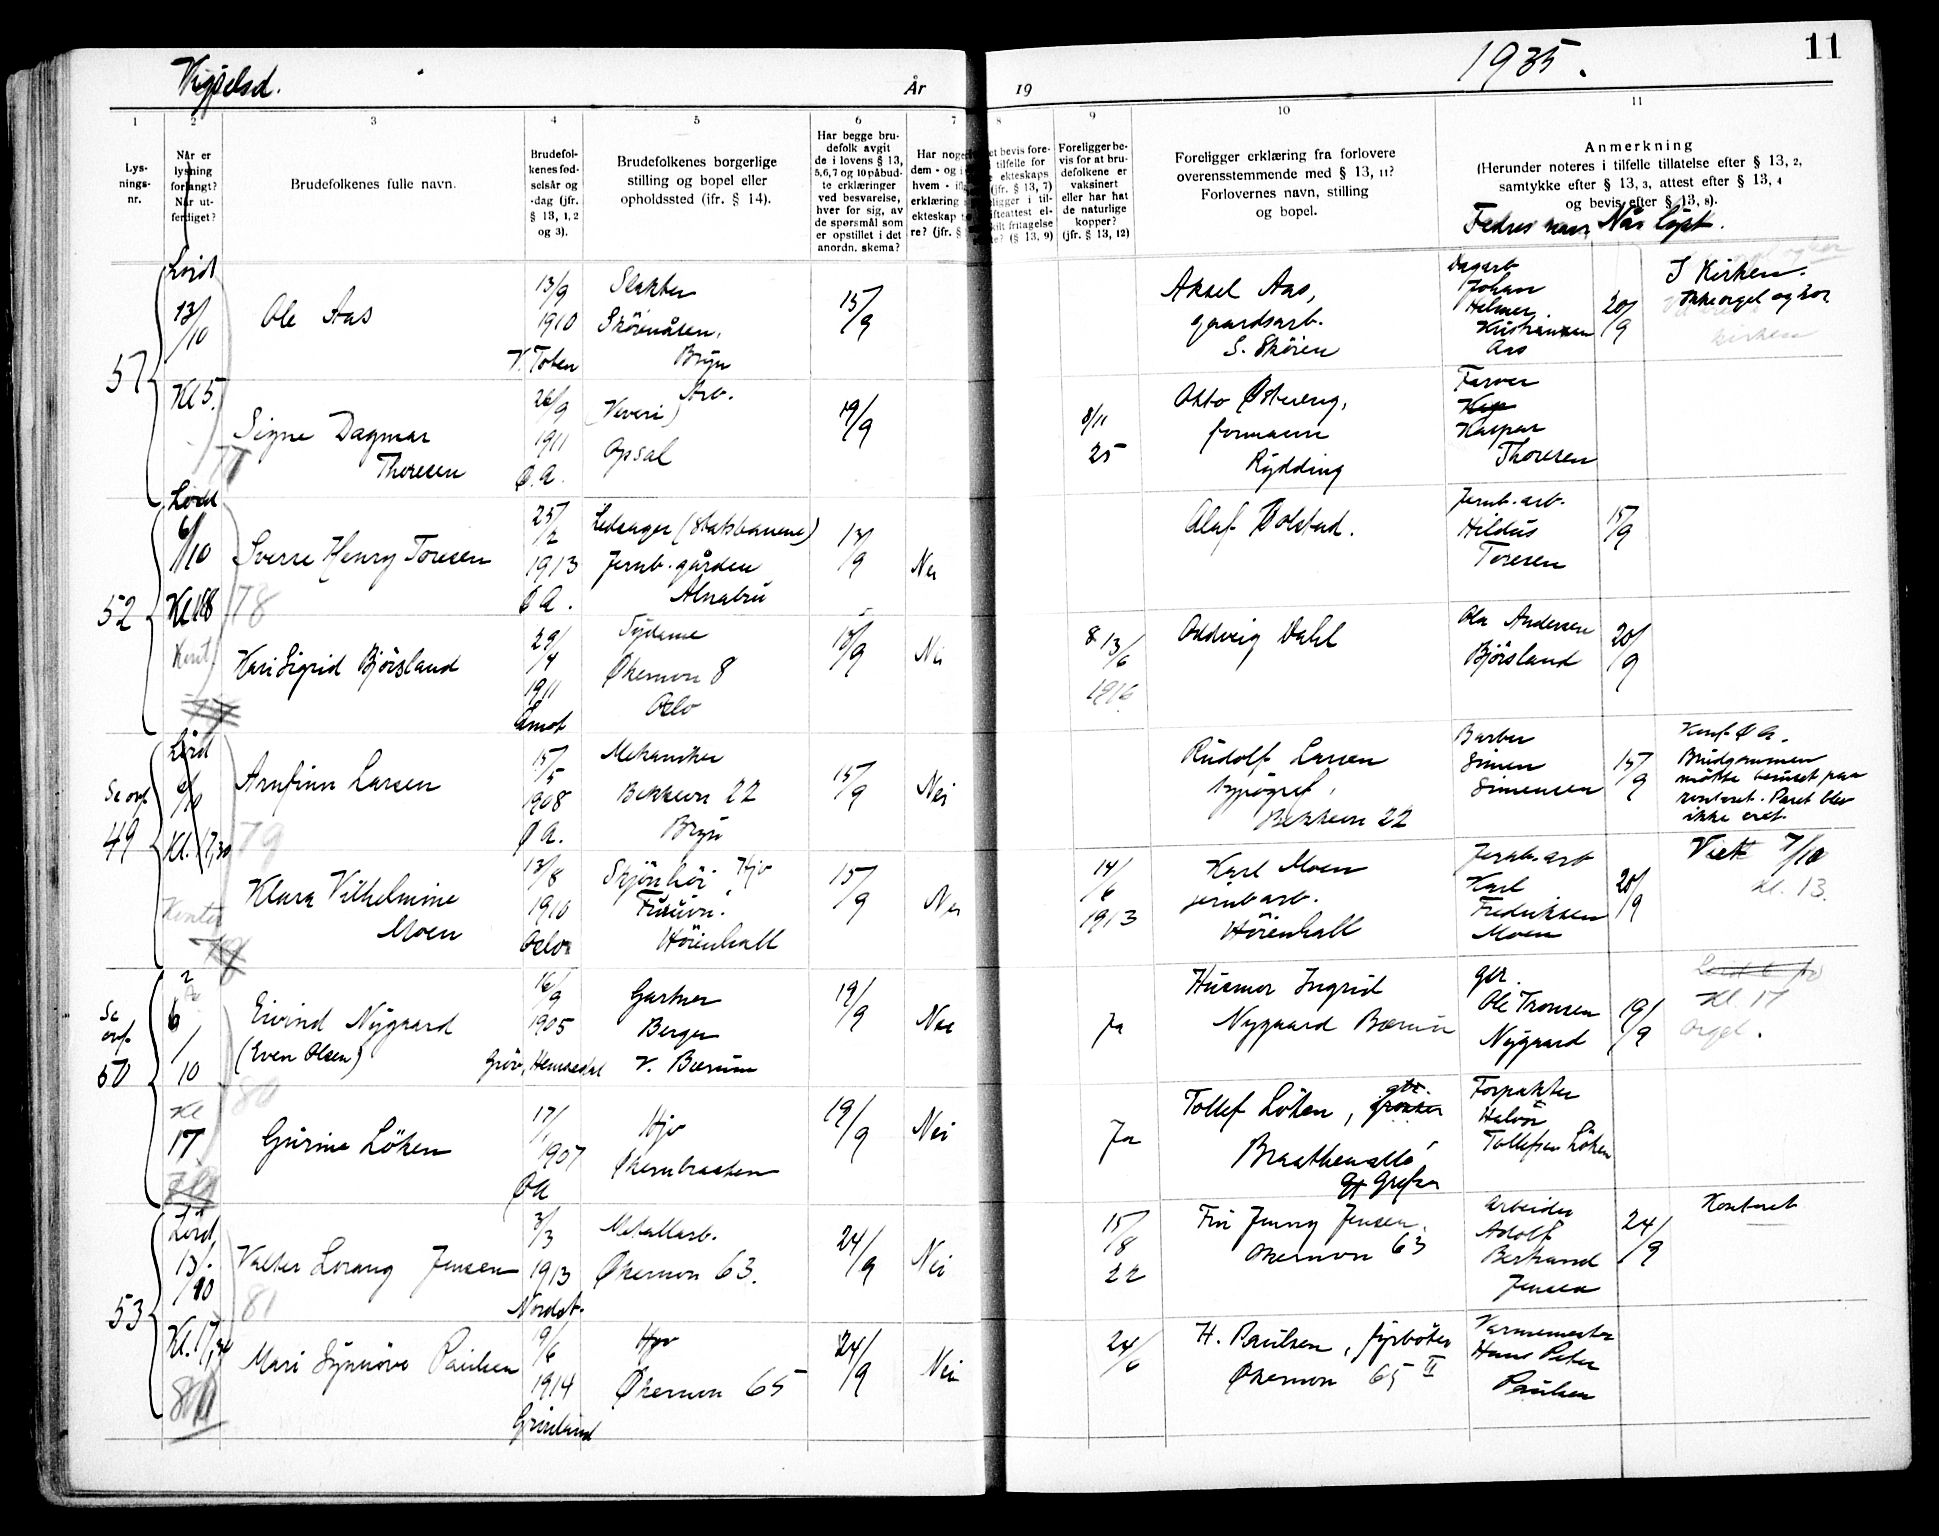 Vigselsd.
År
19
1935.
11
1
2
3
4
5
6
7
8
9
10
11
Lys-
nings-
nr.
Når er
lysning
forlangt?
Når ut-
ferdiget?
Brudefolkenes fulle navn.
Brudefol-
kenes fød-
selsår og
-dag (jfr.
§ 13, 1, 2
og 3).
Brudefolkenes borgerlige
stilling og bopel eller
opholdssted (jfr. § 14).
Har begge bru-
defolk avgit
de i lovens § 13,
5,6,7 og 10 påbud-
te erklæringer
ved besvarelse,
hver for sig, av
de spørsmål som
er opstillet i det
anordn. skema?
Har noge
dem - og i
hvem -
erklæring
ekteskap
re? (jfr. §
et bevis fore-
tilfelle for
ekteskaps
(jfr. § 13, 7)
ligger i til-
ifteattest el-
kilt fritagelse
e? (§ 13, 9)
Foreligger be-
vis for at bru-
defolkene er
vaksinert
eller har hat
de naturlige
kopper?
(jfr. § 13, 12)
Foreligger erklæring fra forlovere
overensstemmende med § 13, 11?
Forlovernes navn, stilling
og bopel.
Anmerkning
(Herunder noteres i tilfelle tillatelse efter § 13, 2,
samtykke efter § 13, 3, attest efter § 13, 4
og bevis efter § 13, 8).
Fedres navn Når lyst.
57
Lørd
12/10
Kl 5.
77
Ole Aas
13/9
1910
V. Toten
Slakter
Skörenåsen,
Bryn
15/9
Aksel Aas,
gaardsarb.
S. Skören
Dagarb
Johan
Helmer
Kristiansen
Aas
20/9
I Kirken.
Ikke orgel og kor
kirken
Signe Dagmar
Thoresen
26/9
1911
Ø.A.
Arb.
(Veveri)
Opsal
19/9
8/11
25
Otto Østereng,
formann
Rydding
Farver
Kaspar
Thoresen
52
Lørd
6/10
Kl 18
78
Sverre Henry Toresen
25/2
1913
Ø A.
Ledsager (Statsbanene)
Jernb.gården
Alnabru
13/9
Nei
Olaf Bolstad.
Jernb.arb.
Hildus
Toresen
15/9
Kari Sigrid Björsland
29/4
1911
Åmot
Sydame
Økernvn 8
Oslo
18/9
Nei
8 13/6
1916
Oddveig Dahl
Ola Andersen
Björsland
20/9
Se ovf.
49
Lørd
Kl. 17,30
79
Arnfinn Larsen
15/5
1908
Ø A.
Mekaniker
Bekkevn 22
Bryn
15/9
Nei
Rudolf Larsen
typograf,
Bekkevn 22
Barber
Simen
Simensen
15/9
Konf. Ø A.
Brudgommen
mötte beruset paa
kontoret. Paret blev
ikke viet.
Kontor
78
Klara Vilhelmine
Moen
13/8
1910
Oslo
Skjönhöi, Hjv
Höienhall
15/9
Nei
14/6
1913
Karl Moen
jernbarb.
Höienhall
Jernb.arb
Karl
Fredriksen
Moen
20/9
Viet 7/10
Kl. 13.
Se
ovf.
50
6/10
Kl
17
80
Eivind Nygaard
(Even Olsen)
16/9
1905
Gröv, Hemsedal
Gartner
Berger
V. Bærum
19/9
Nei
Ja
Husmor Ingrid
Nygaard Bærum
gbr.
Ole Tronsen
Nygaard
19/9
Kl. 17
Orgel.
Gurine Löken
17/1
1907
ØA
Hjv
Økernbraaten
19/9
Nei
Ja
Tollef Löken, gbr.
Braathenallé,
Grefsen
Forpakter
Halvor
Tollefsen Löken
53
Lørd
13/10
Kl. 17,30
81
Valter Lorang Jensen
3/3
1913
Nordst.
Metallarb.
Økernvn 63.
24/9
Nei
15/8
22
Fru Jenny Jensen,
Økernvn 63
Arbeider
Adolf
Bertrand
Jensen
24/9
Kontoret
80
Mari Synnöve Paulsen
9/6
1914
Grinilund
Hjv
Økernvn 65
24/9
Nei
24/6
H. Paulsen, fyrböter
Økernvn 65 II
Varmemester
Hans Peter
Paulsen